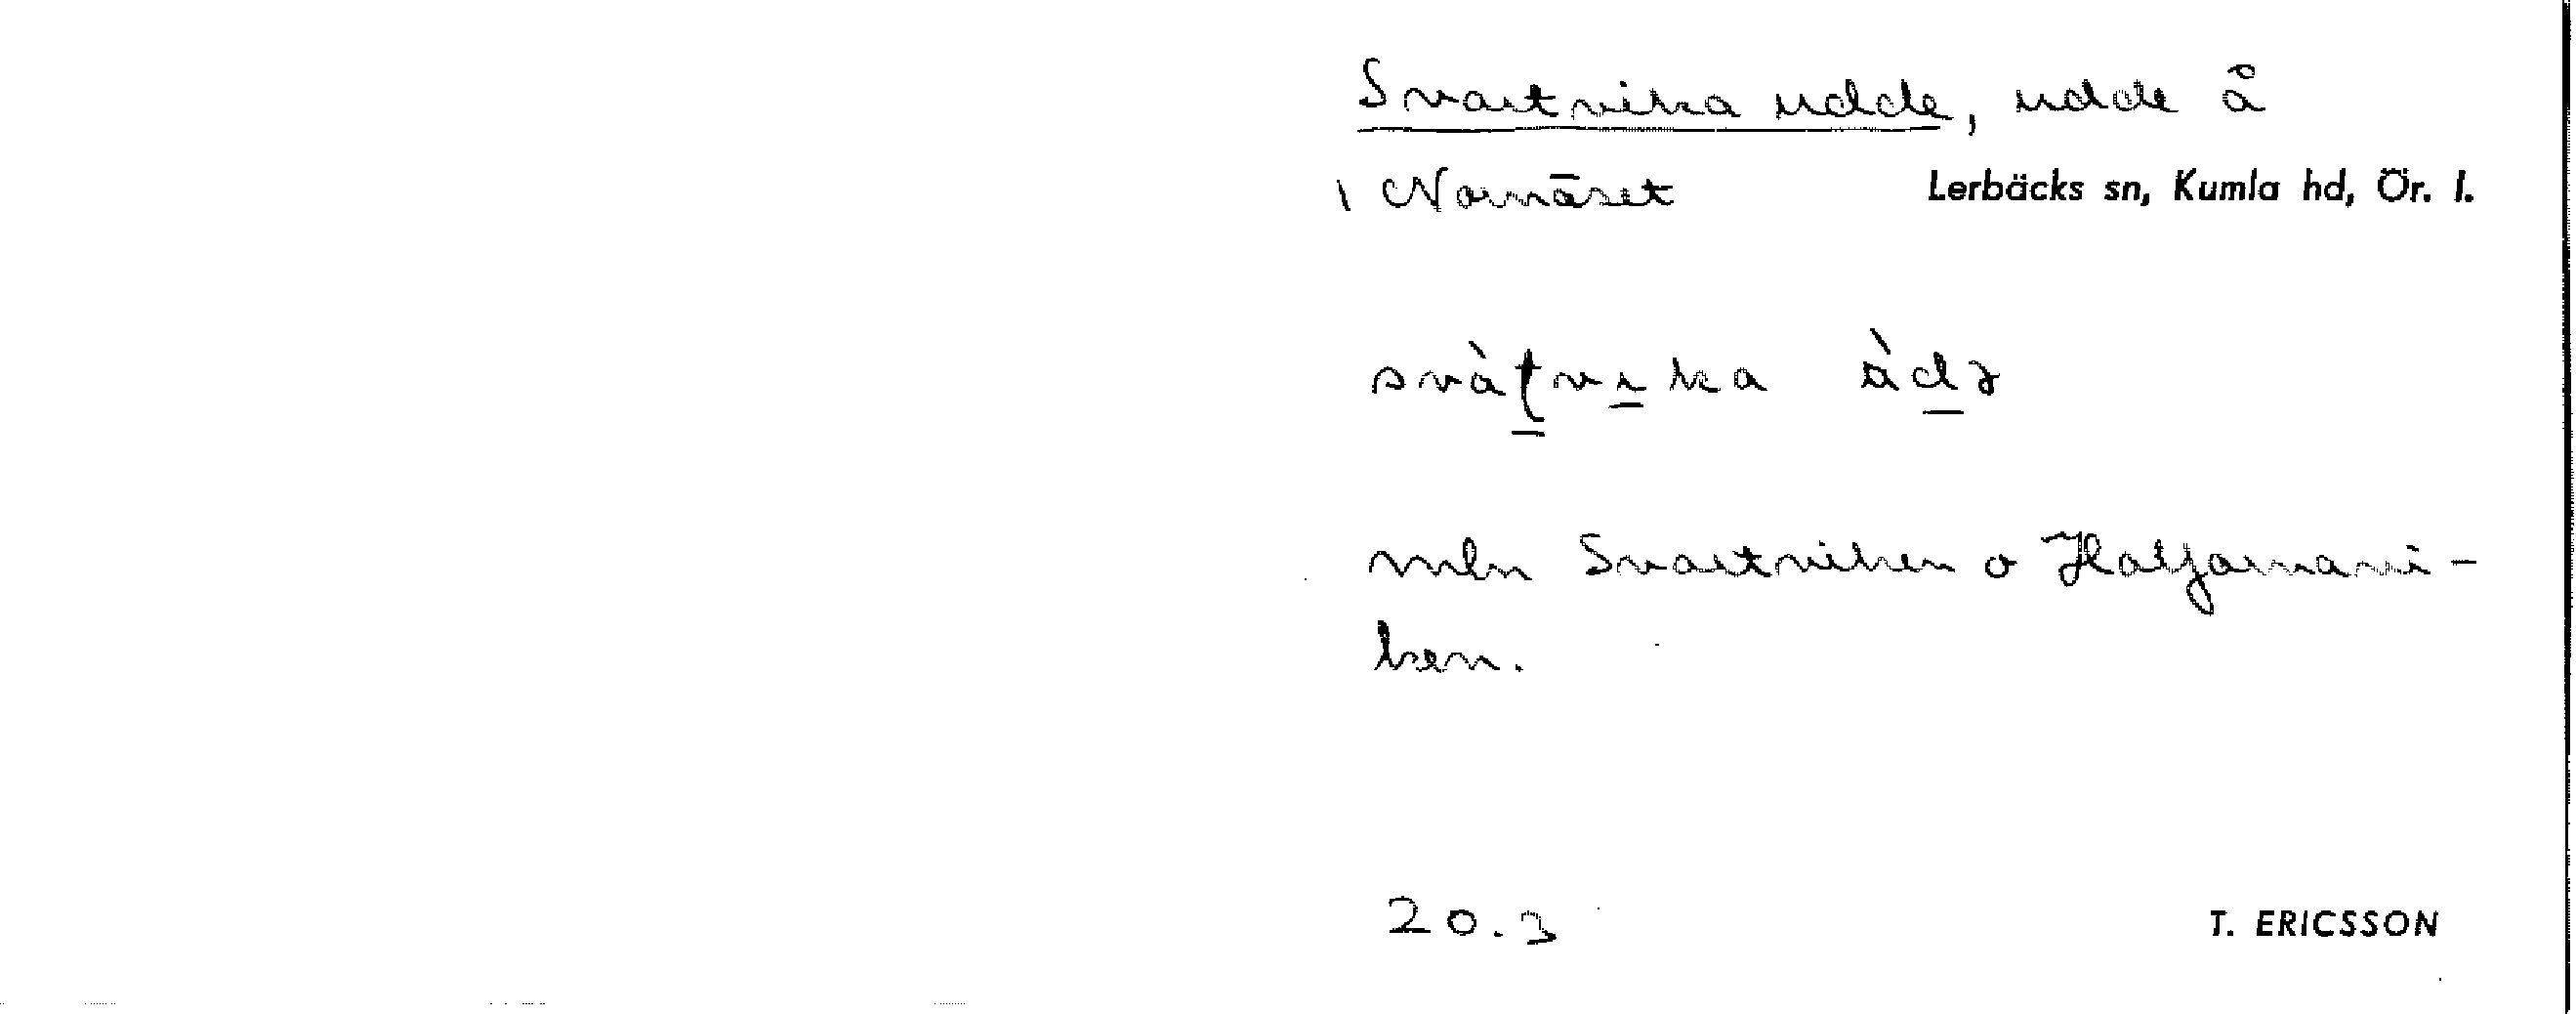 Svartvika udde, udde å
i Norrnäset Lerbäcks sn, Kumla hd, Ör. l.
svàṭvıka àdə
mln Svartviken o
ken.
20.3
T. ERICSSON